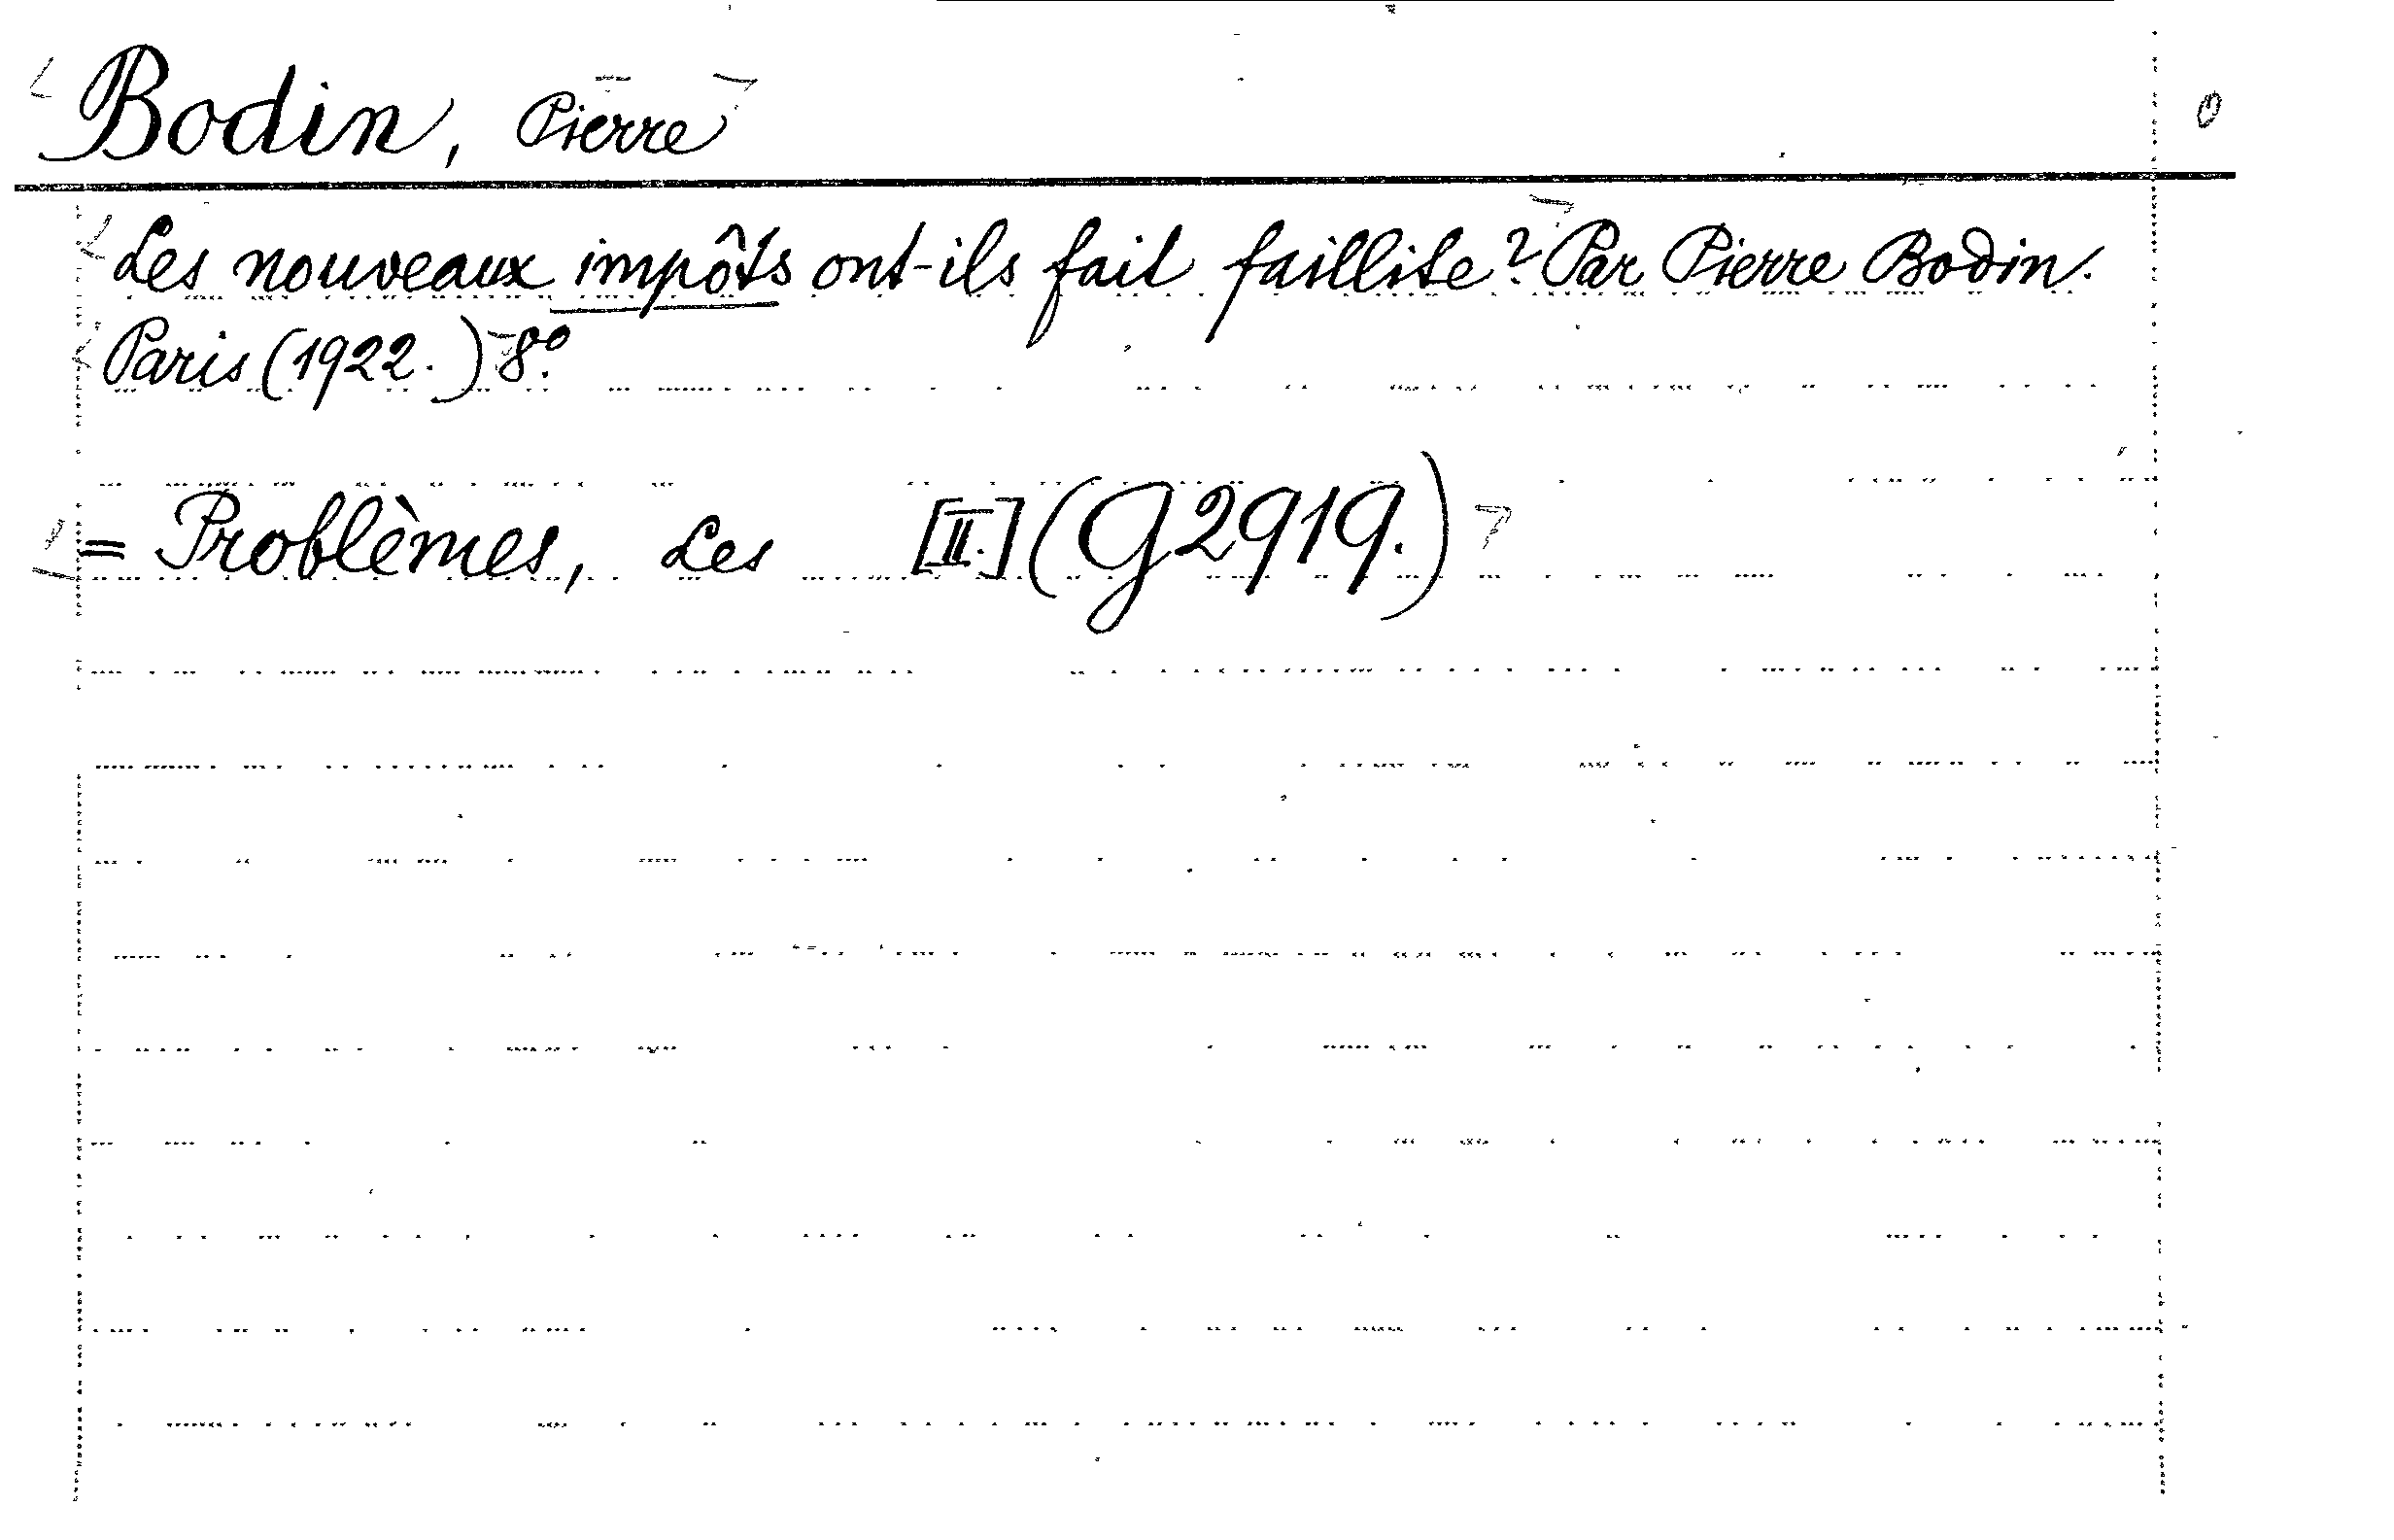 Bodin, Pierre
Les nouveaux impôts ont-ils fait faillite? Par Pierre Bodin.
Paris (1922.) 8°.
= Problèmes, Les [II.] (G2919.)